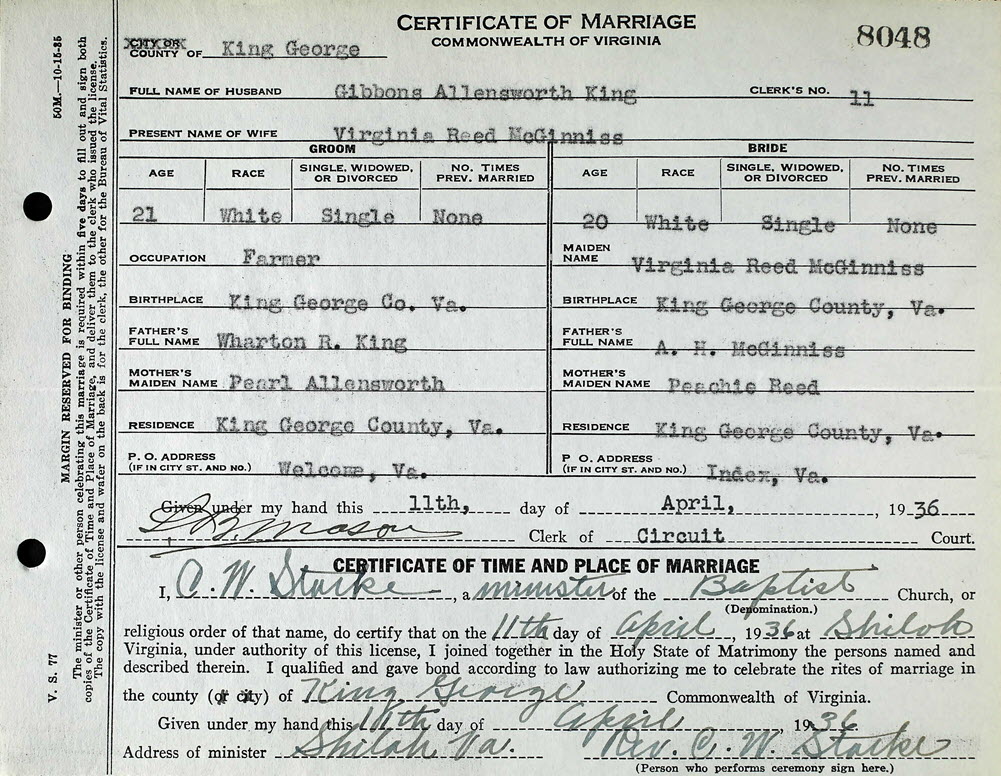 CERTIFICATE OF MARRIAGE
COMMONWEALTH OF VIRGINIA
8048
CITY OR
COUNTY OF King George
FULL NAME OF HUSBAND Gibbons Allensworth King CLERK'S NO. 11
PRESENT NAME OF WIFE Virginia Reed McGinniss
GROOM BRIDE
AGE RACE SINGLE, WIDOWED, OR DIVORCED NO. TIMES PREV. MARRIED AGE RACE SINGLE, WIDOWED, OR DIVORCED NO. TIMES PREV. MARRIED
21 White Single None 20 White Single None
OCCUPATION Farmer MAIDEN NAME Virginia Reed McGinniss
BIRTHPLACE King George Co. Va. BIRTHPLACE King George County, Va.
FATHER'S FULL NAME Wharton R. King FATHER'S FULL NAME A. H. McGinniss
MOTHER'S MAIDEN NAME Pearl Allensworth MOTHER'S MAIDEN NAME Peachie Reed
RESIDENCE King George County, Va. RESIDENCE King George County, Va.
P. O. ADDRESS (IF IN CITY ST. AND NO.) Welcome, Va. P O. ADDRESS (IF IN CITY ST. AND NO.) Index, Va.
Given under my hand this 11th, day of April, , 1936
Mason Clerk of Circuit Court.
CERTIFICATE OF TIME AND PLACE OF MARRIAGE
I, C. W. Starke , a minister of the Baptist Church, or
(Denomination.)
religious order of that name, do certify that on the 11th day of April , 1936 at Shiloh
Virginia, under authority of this license, I joined together in the Holy State of Matrimony the persons named and
described therein. I qualified and gave bond according to law authorizing me to celebrate the rites of marriage in
the county (or city) of King George Commonwealth of Virginia.
Given under my hand this 11th day of April 1936
Address of minister Shiloh Va. Rev. C. W. Starke
(Person who performs ceremony sign here.)
V. S. 77 50M.—10-15-35
MARGIN RESERVED FOR BINDING
The minister or other person celebrating this marriage is required within five days to fill out and sign both
copies of the Certificate of Time and Place of Marriage, and deliver them to the clerk who issued the license.
The copy with the license and wafer on the back is for the clerk, the other for the Bureau of Vital Statistics.